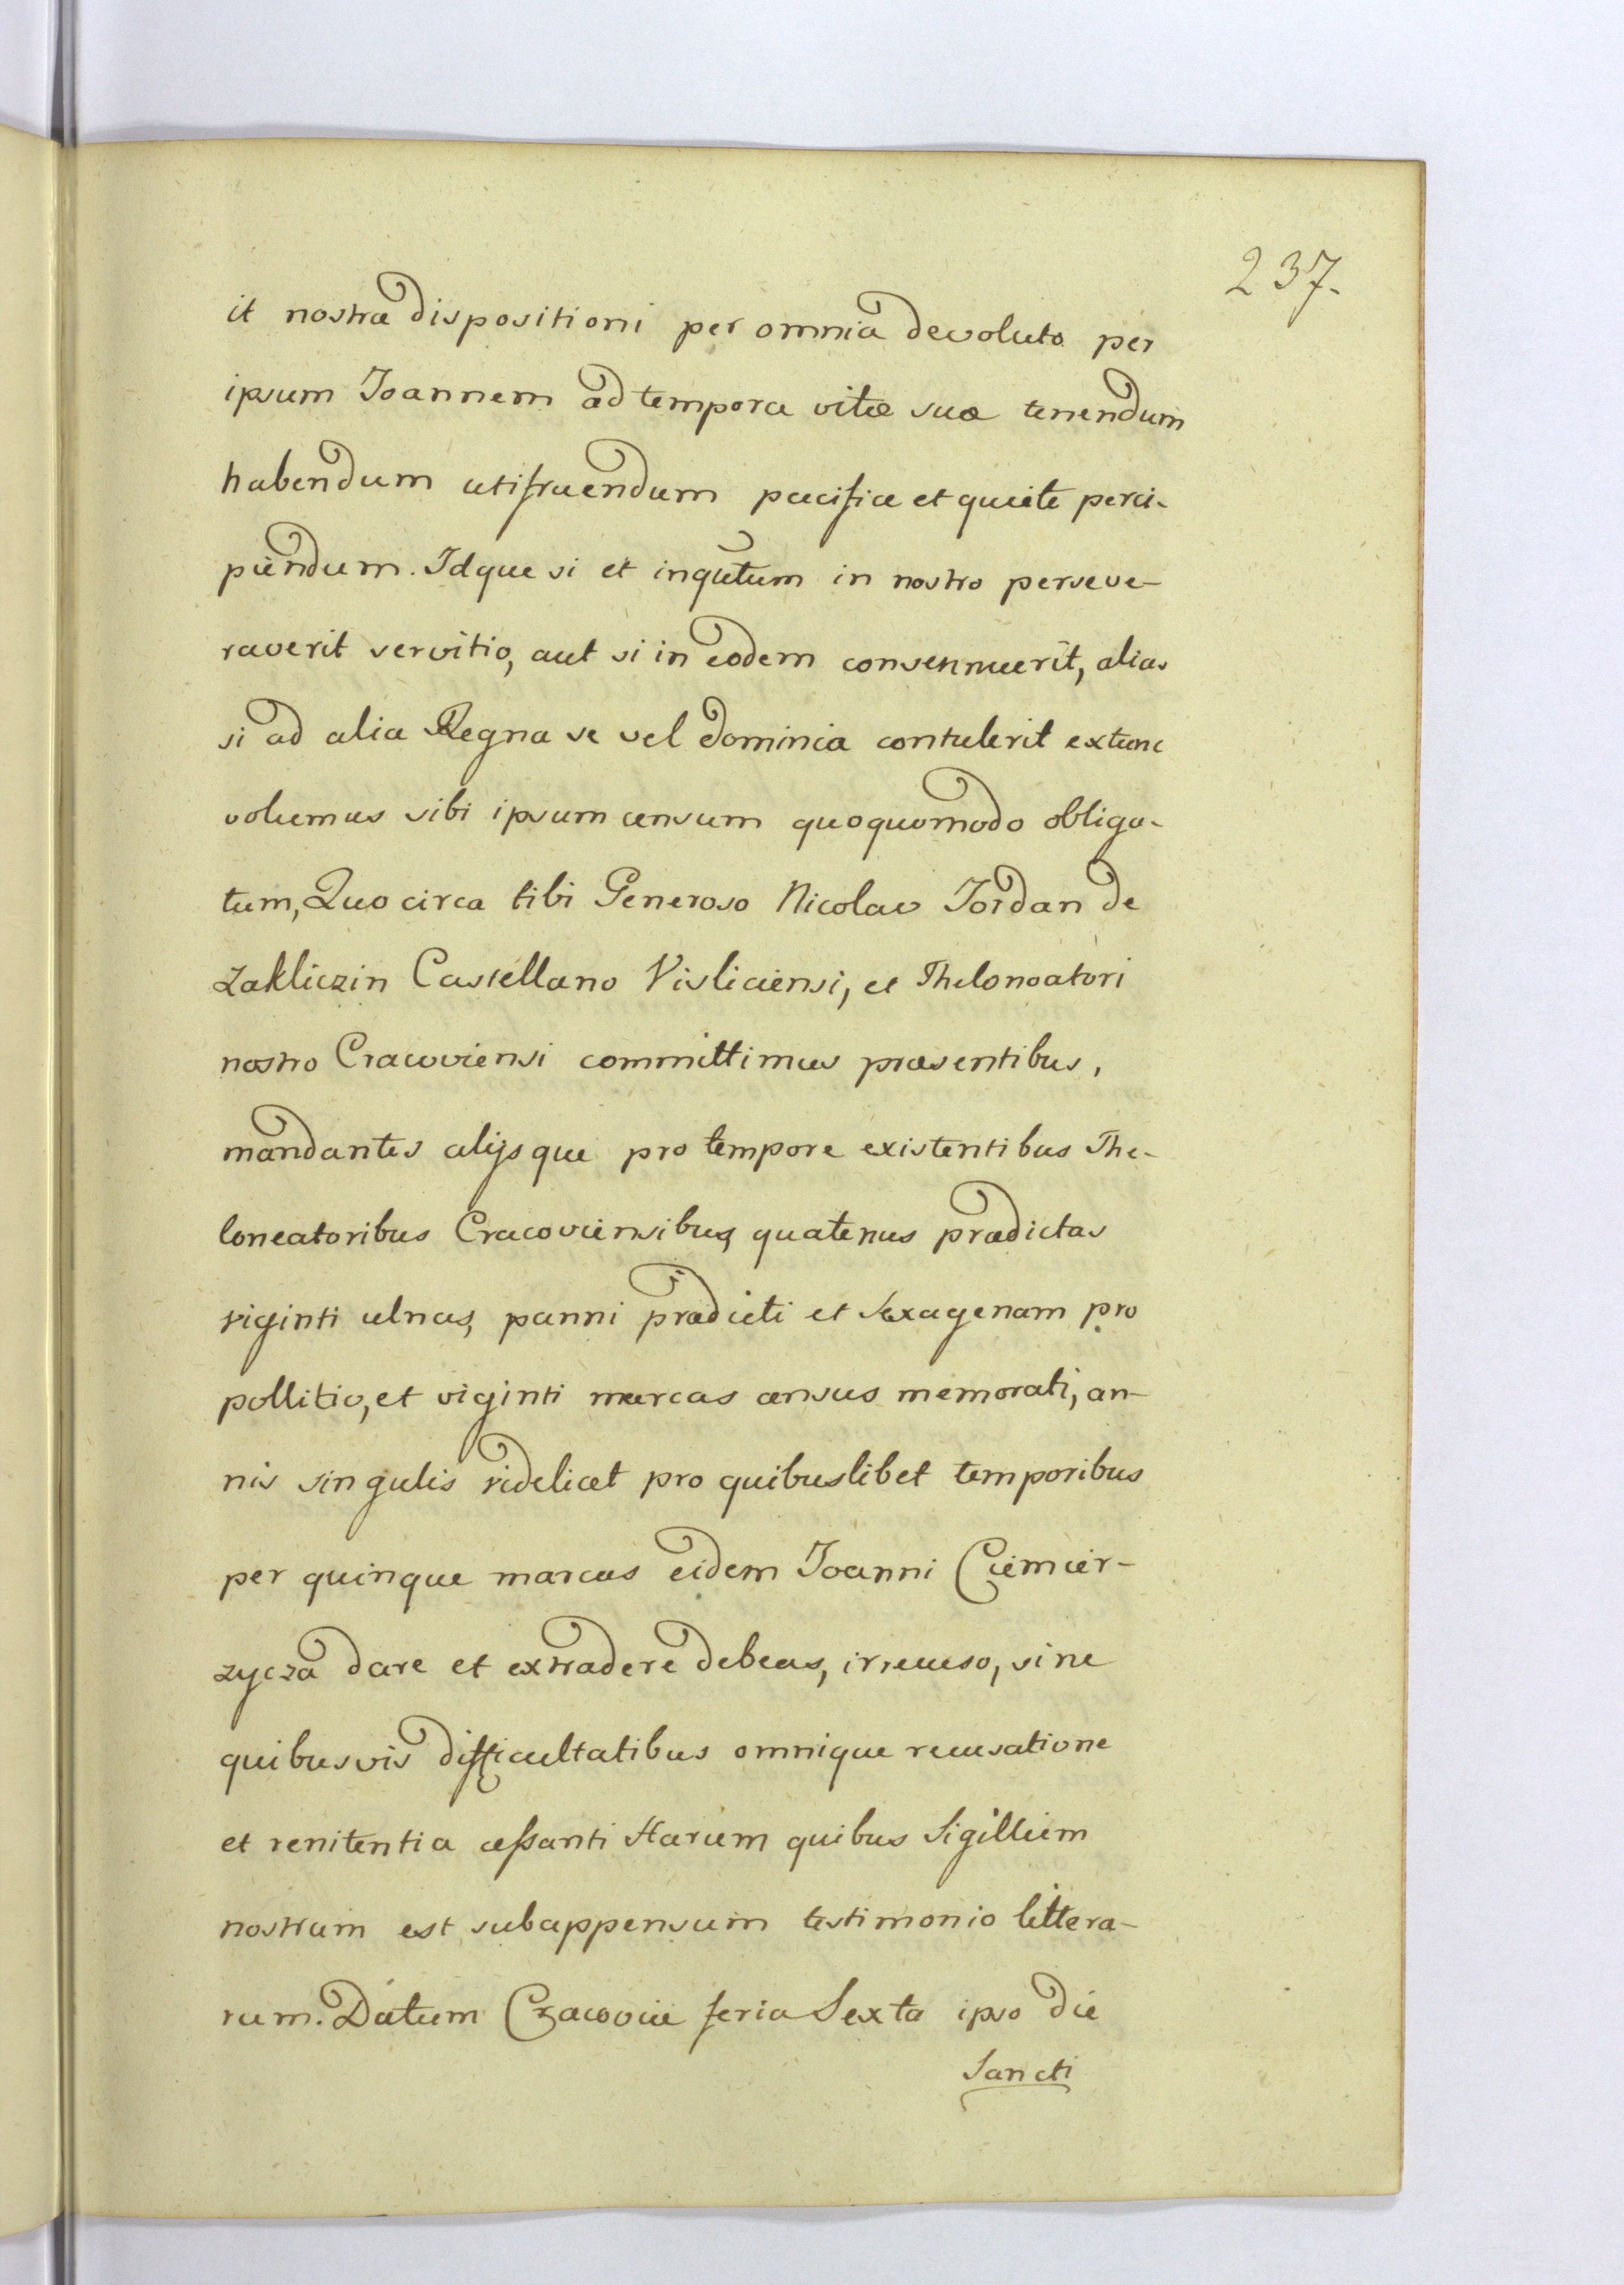 237.
it nostræ dispositioni per omnia devoluto per
ipsum Joannem ad tempora vitæ suæ tenendum
habendum utifruendum pacifice et quiete perci-
piendum. Idque si et inqūtum in nostro perseve-
raverit servitio, aut si in eodem consennuerit, alias
si ad alia Regna se vel dominia contulerit extunc
volumus sibi ipsum censum quoquomodo obliga-
tum, Quo circa tibi Generoso Nicolao Jordan de
Zakliczin Castellano Visliciensi, et Thelonoatori
nostro Cracoviensi committimus præsentibus,
mandantes alijsque pro tempore existentibus The-
loneatoribus Cracoviensibus, quatenus prædictas
viginti ulnas, panni prædicti et Sexagenam pro
pollitio, et viginti marcas census memorati, an-
nis singulis videlicet pro quibuslibet temporibus
per quinque marcas eidem Joanni Ciemier-
zycza dare et extradere debeas, irrecuso, sine
quibusvis difficultatibus omnique recusatione
et renitentia cessanti Harum quibus Sigillum
nostrum est subappensum testimonio littera-
rum. Datum Cracoviæ feria Sexta ipso die
Sancti